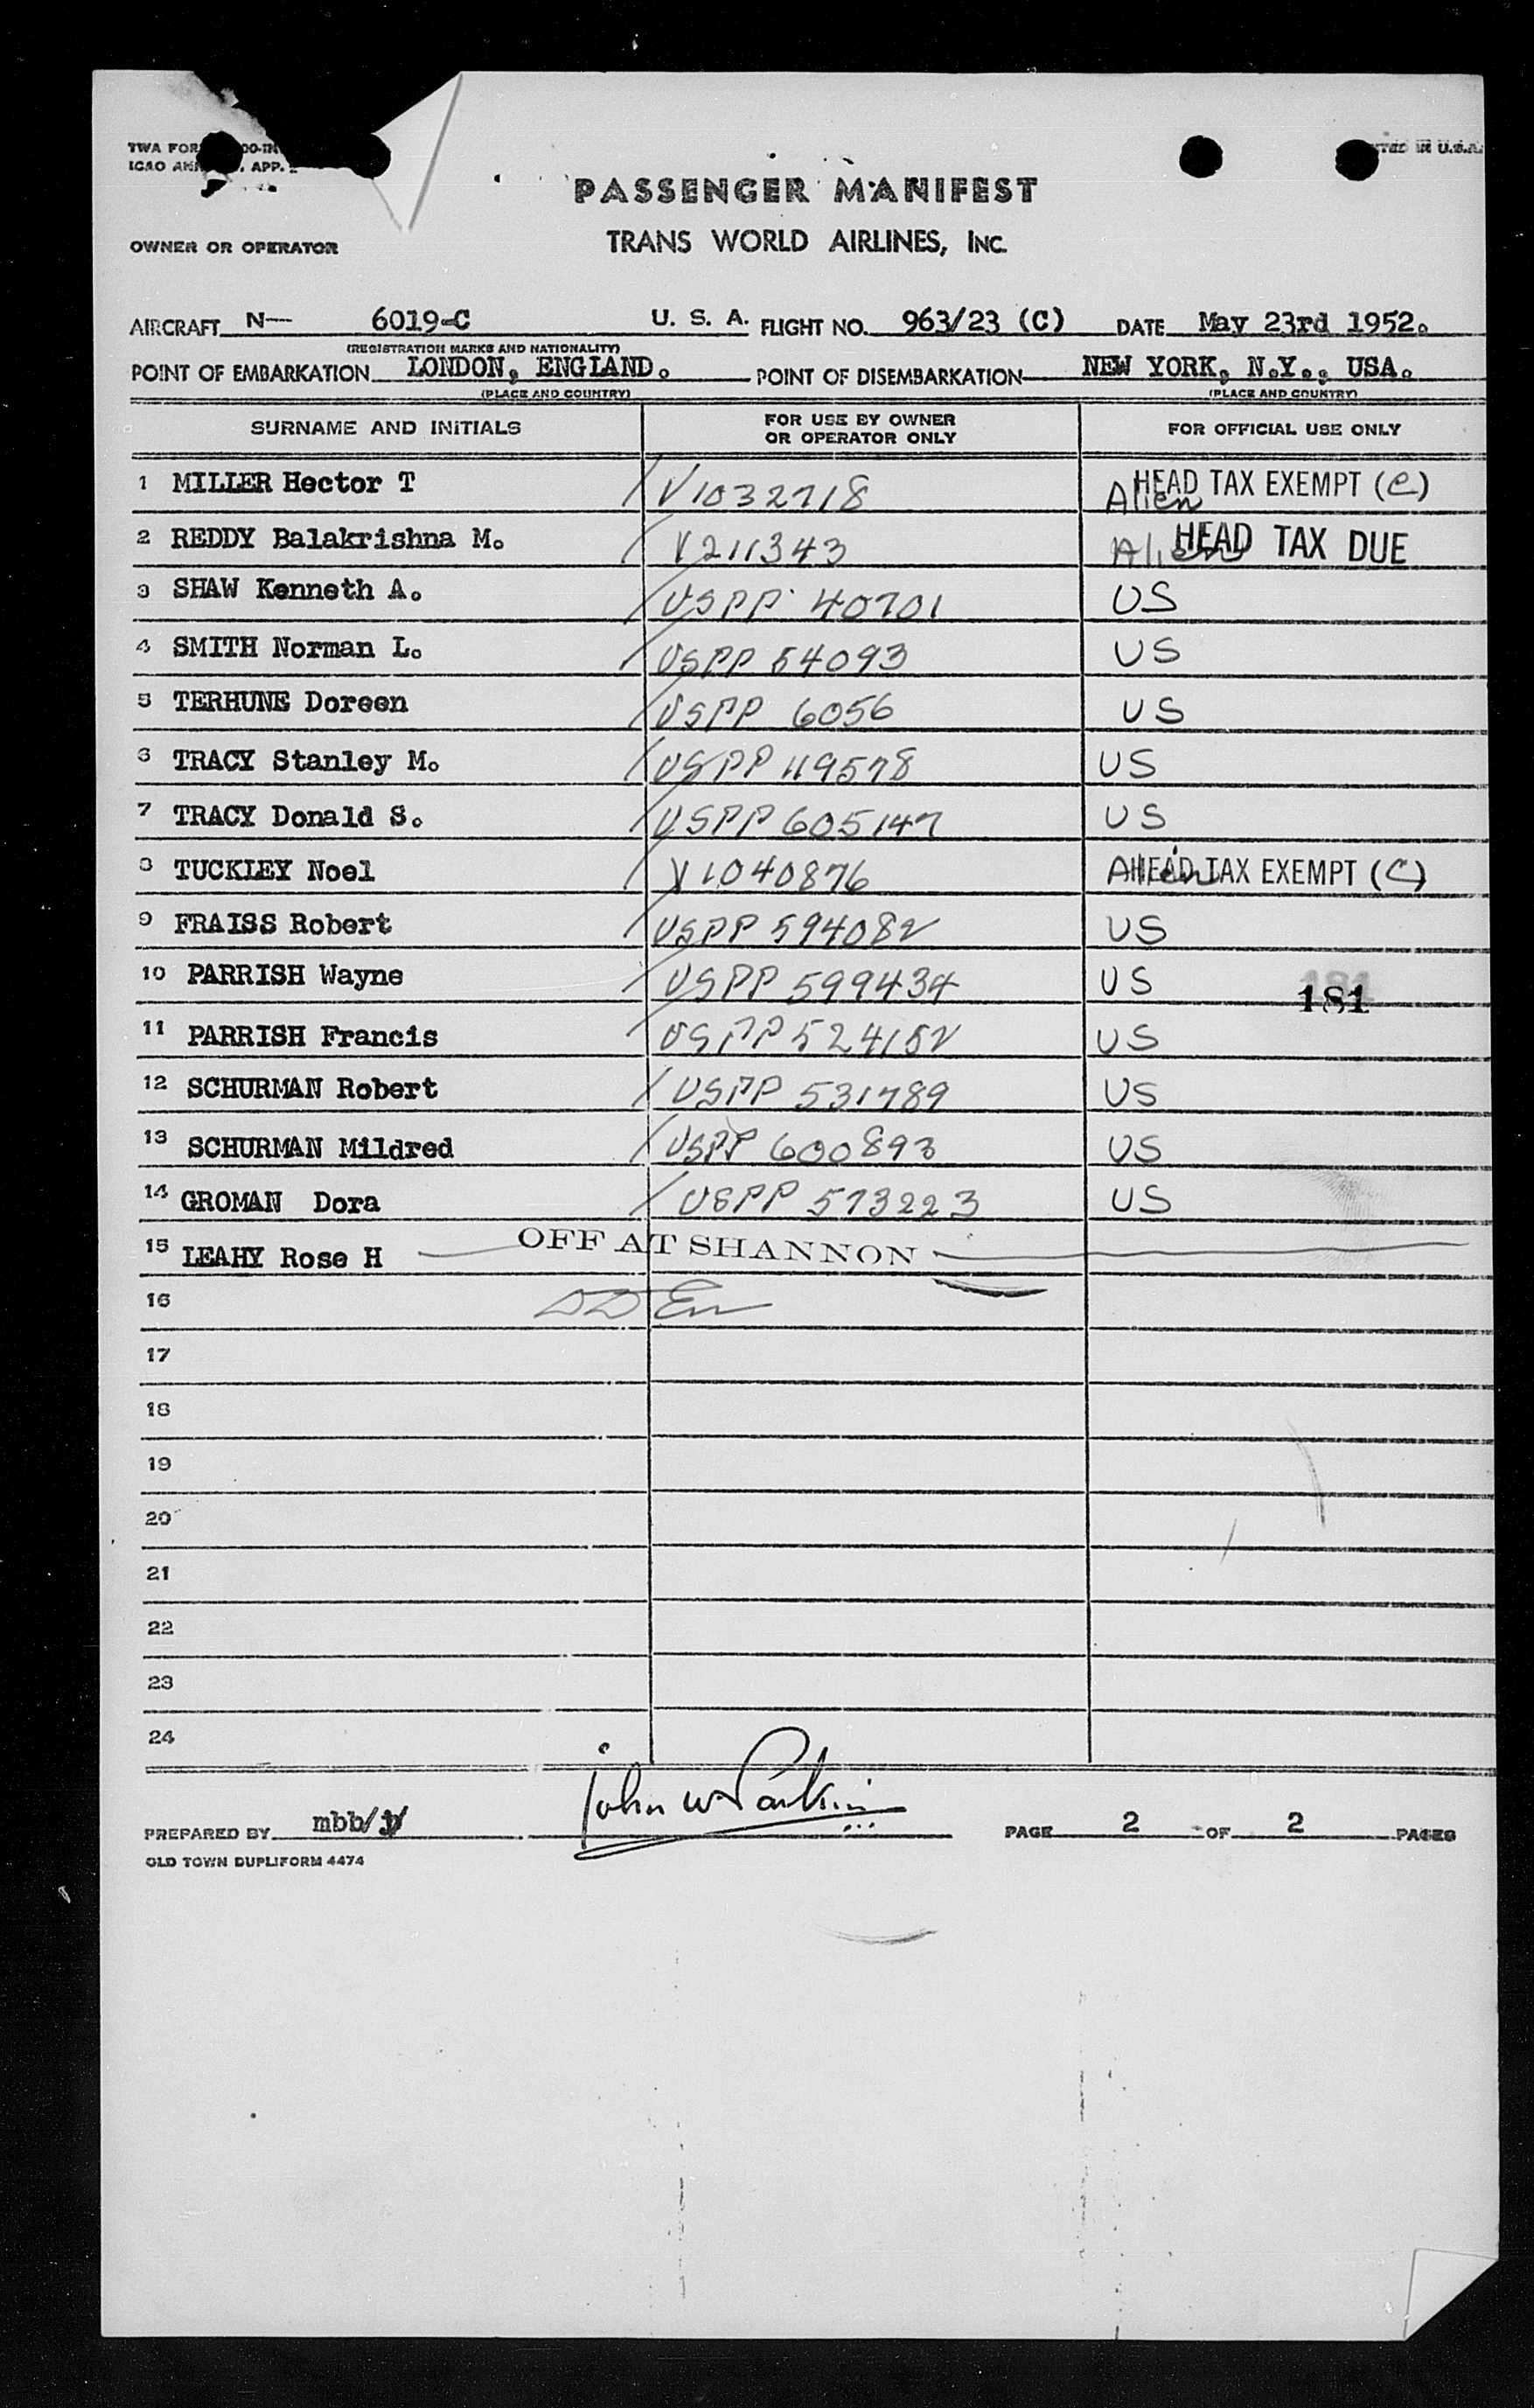 TWA FOR
ICAO APP.
IN U.S.A.
PASSENGER MANIFEST
OWNER OR OPERATOR TRANS WORLD AIRLINES, INC.
AIRCRAFT N— 6019-C U. S. A. FLIGHT NO. 963/23 (C) DATE May 23rd 1952.
(REGISTRATION MARKS AND NATIONALITY)
POINT OF EMBARKATION LONDON, ENGLAND. POINT OF DISEMBARKATION NEW YORK, N.Y., USA.
(PLACE AND COUNTRY) (PLACE AND COUNTRY)
SURNAME AND INITIALS FOR USE BY OWNER OR OPERATOR ONLY FOR OFFICIAL USE ONLY
1 MILLER Hector T V1032718 Alien HEAD TAX EXEMPT (C)
2 REDDY Balakrishna M. V211343 Alien HEAD TAX DUE
3 SHAW Kenneth A. USPP 40701 US
4 SMITH Norman L. USPP 54093 US
5 TERHUNE Doreen USPP 6056 US
6 TRACY Stanley M. USPP 119578 US
7 TRACY Donald S. USPP 605147 US
8 TUCKLEY Noel V1040876 Alien HEAD TAX EXEMPT (C)
9 FRAISS Robert USPP 594082 US
10 PARRISH Wayne USPP 599434 US 181
11 PARRISH Francis USPP 524152 US
12 SCHURMAN Robert USPP 531789 US
13 SCHURMAN Mildred USPP 600893 US
14 GROMAN Dora USPP 573223 US
15 LEAHY Rose H OFF AT SHANNON
16
17
18
19
20
21
22
23
24
PREPARED BY mbb/ John W Parkin PAGE 2 OF 2 PAGES
OLD TOWN DUPLIFORM 4474